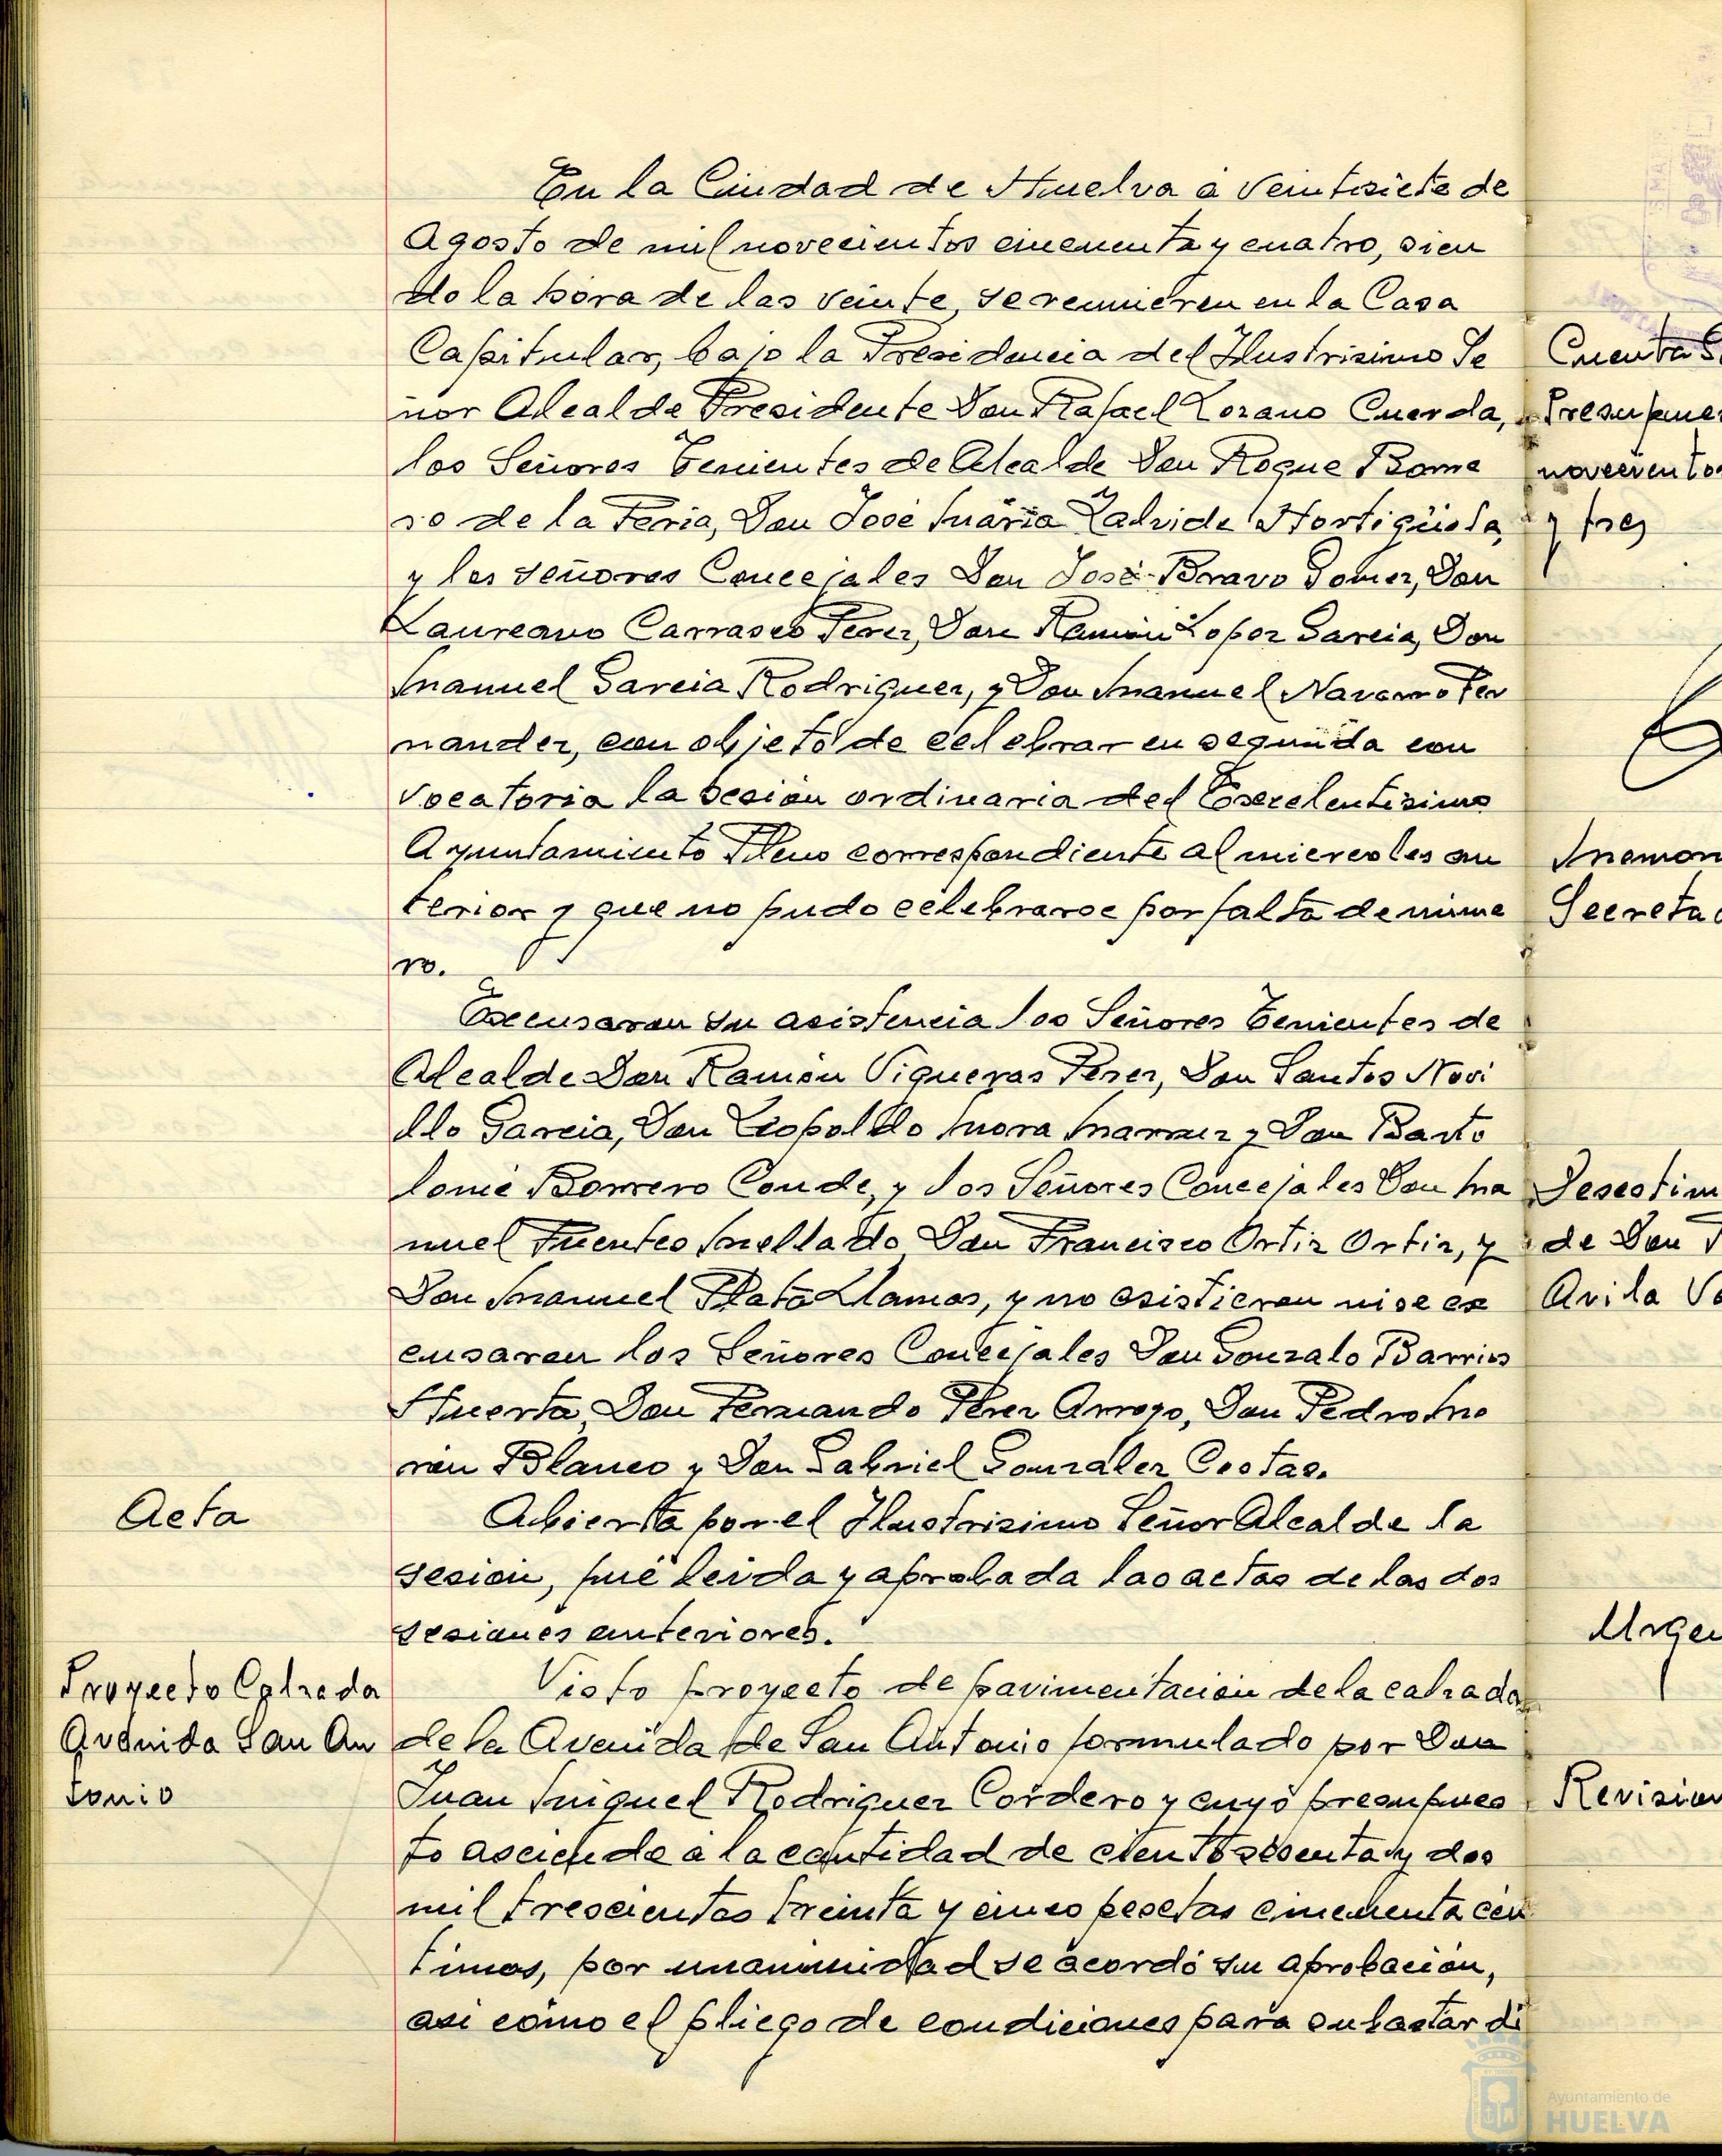 En la Ciudad de Huelva a veintisiete de
Agosto de mil novecientos cincuenta y cuatro, sien
do la hora de las veinte, se reunieron en la Casa
Capitular, bajo la Presidencia del Ilustrisimo Se
ñor Alcalde Presidente Don Rafael Lozano Cuerda,
los Señores Tenientes de Alcalde Don Roque Rome
ro de la Feria, Don José María Zalvide Hortigüela,
y los señores Concejales Don José Bravo Gomez, Don
Laureano Carrasco Perez, Don Ramón Lopez Garcia, Don
Manuel Garcia Rodriguez, y Don Manuel Navarro Fer
nandez, con objeto de celebrar en segunda con
vocatoria la sesión ordinaria del Excelentisimo
Ayuntamiento Pleno correspondiente al miercoles an
terior y que no pudo celebrarse por falta de núme
ro.
Excusaron su asistencia los Señores Tenientes de
Alcalde Don Ramón Vigueras Perez, Don Santos Novi
llo Garcia, Don Leopoldo Mora y Don Barto
lomé Borrero Conde, y los Señores Concejales Don Ma
nuel Fuentes Mellado Don Francisco Ortiz Ortiz, y
Don Manuel Plata Llamas, y no asistieron ni se ex
cusaron los Señores Concejales Don Gonzalo Barrios
Huerta, Don Fernando Perez Arroyo, Don Pedro Mo
ron Blanco y Don Gabriel Gonzalez Costas.
Acta
Abierta por el Ilustrisimo Señor Alcalde la
sesión, fué leida y aprobada las actas de las dos
sesiones anteriores.
Proyecto Calzada
Avenida San An
tonio
Visto proyecto de pavimentación de la calzada
de la Avenida de San Antonio formulado por Don
Juan Miguel Rodriguez Cordero y cuyo presupues
to asciende a la cantidad de ciento sesenta y dos
mil trescientas treinta y cinco pesetas cincuenta cén
timos, por unanimidad se acordó su aprobación,
asi como el pliego de condiciones para subastar di
Cuenta
Presupues
novecientos
y tres
Memor
Secreta
Desestim
de Don
Avila
Urgen
Revision
Ayuntamiento de
HUELVA